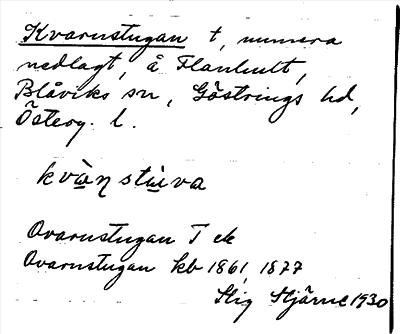 Kvarnstugan t, numera
nedlagt, å Flanhult,
Blåviks sn, Göstrings hd,
Österg. l.
kvàn̥ stùva
Qvarnstugan T ek
Qvarnstugan kb 1861, 1877
Stig Stjärne 1930